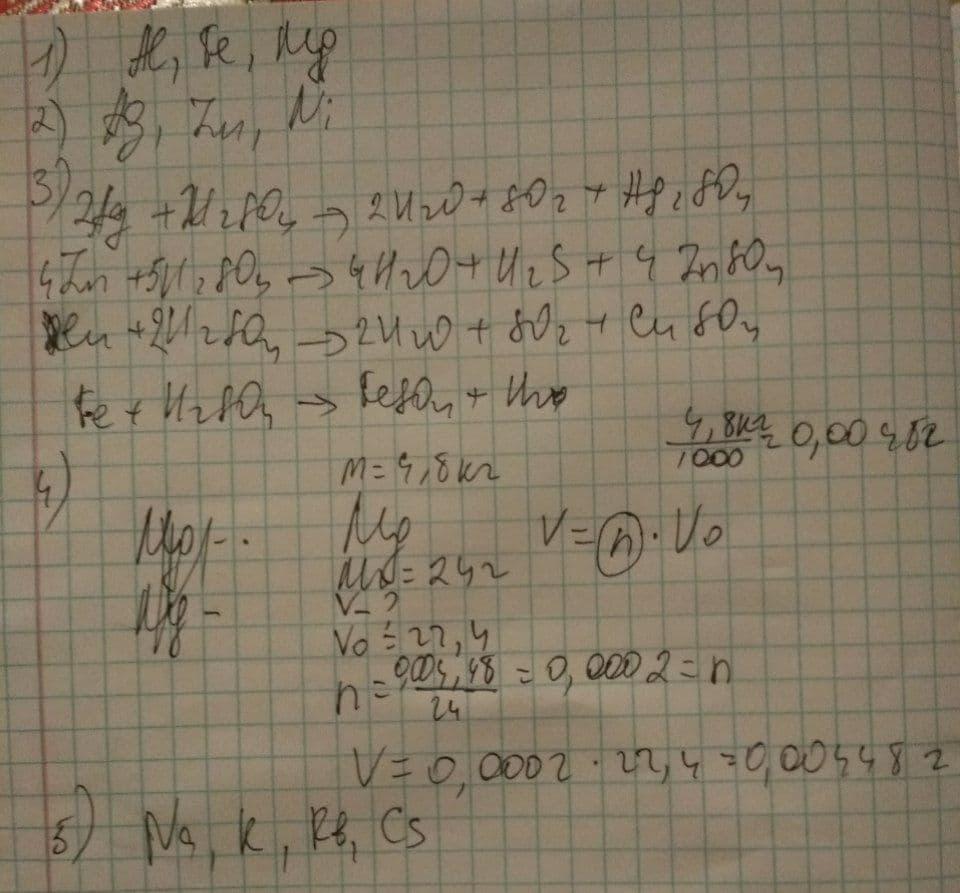 1) Al, Fe, Mg
2) Ag, Zn, Ni
3) 2Ag + 2H2SO4 → 2H2O + SO2 + Ag2SO4
4Zn + 5H2SO4 → 4H2O + H2S + 4 ZnSO4
Cu + 2H2SO4 → 2H2O + SO2 + CuSO4
Fe + H2SO4 → FeSO4 + H2
4,8кг/1000 = 0,0048г
4) m = 4,8кг
Mg V = n · V0
= 24г
Mg -
V - ?
V0 = 22,4
n = /24 = 0,0002 = n
V = 0,0002 · 22,4 = 0,00448 г
5) Na, K, Rb, Cs